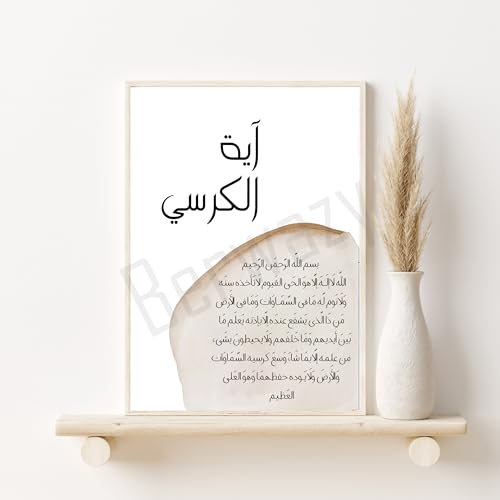 آية
الكرسي
بسم الله الرّحمن الرّحيم
اللّه لا إلـه إلّا هو الحيّ القيّوم لا تأخذه سنة
ولا نوم لّه ما في السّماوات وما في الأرض
من ذا الّذي يشفع عنده إلّا بإذنه يعلم ما
بين أيديهم وما خلفهم ولا يحيطون بشيء
من علمه إلّا بما شاء وسع كرسيّه السّماوات
والأرض ولا يؤوده حفظهما وهو العليّ
العظيم
Beewazy